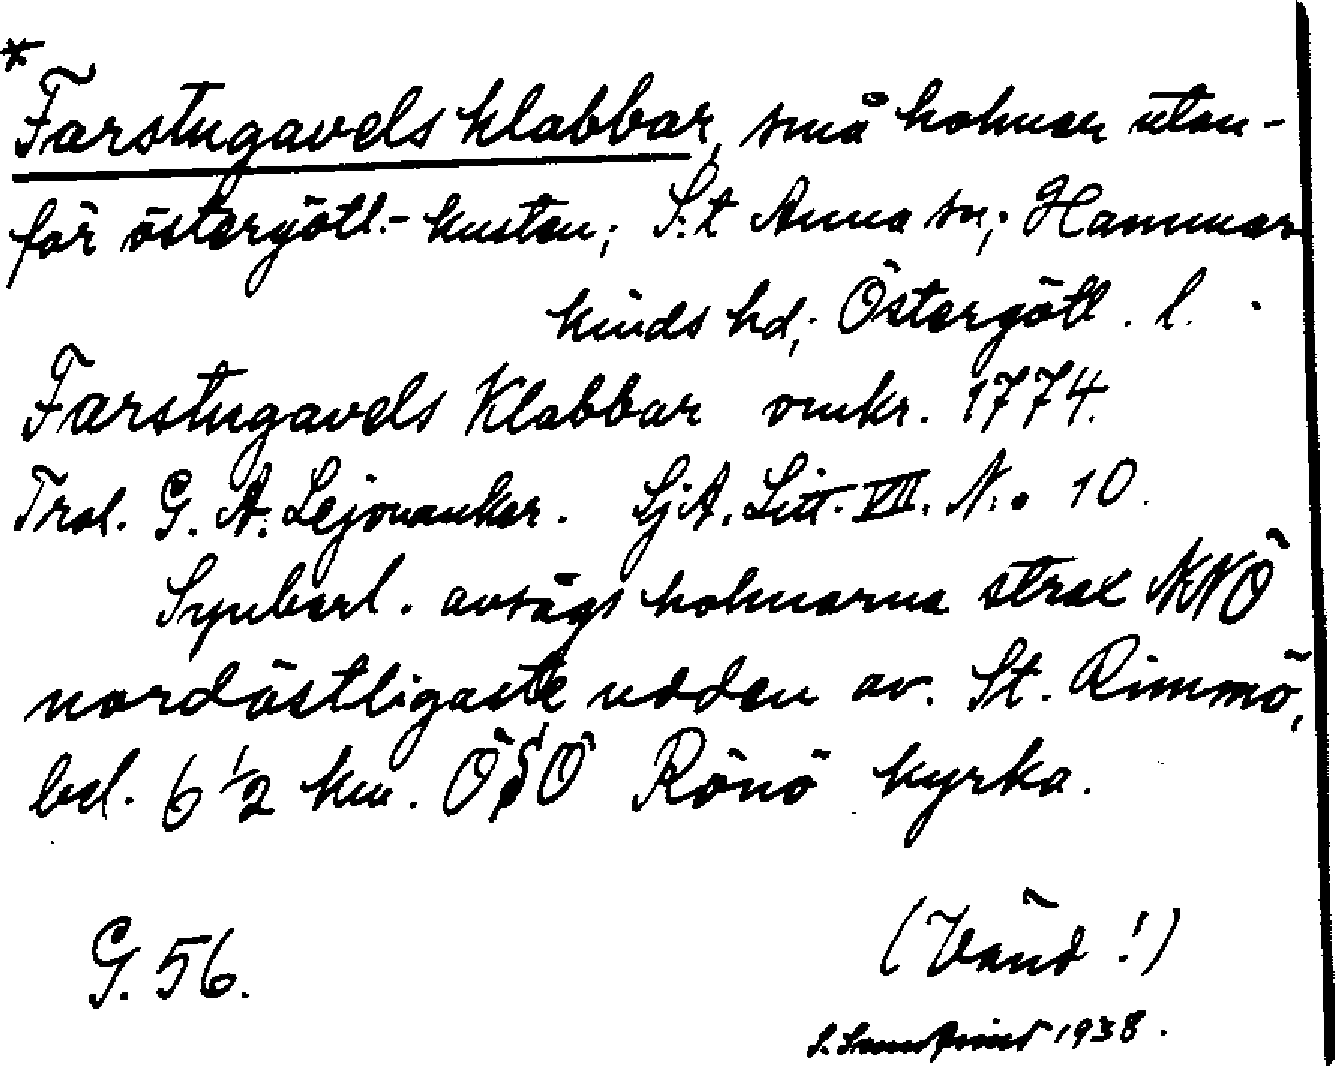 * Farstugavels klabbar, små holmar utan-
för östergötl.-kusten; S:t Anna sn; Hammar
kinds hd; Östergötl. l.
Farstugavels Klabbar omkr. 1774.
Trol. G. A. Lejonanker. SjA. Litt. VII. N:o 10.
Synbarl. avsågs holmarna strax NNÖ
nordöstligaste udden av. St. Rimmö,
bel. 6 1/2 km. ÖSÖ Rönö kyrka.
G. 56.
(Vänd!)
S. 1938.